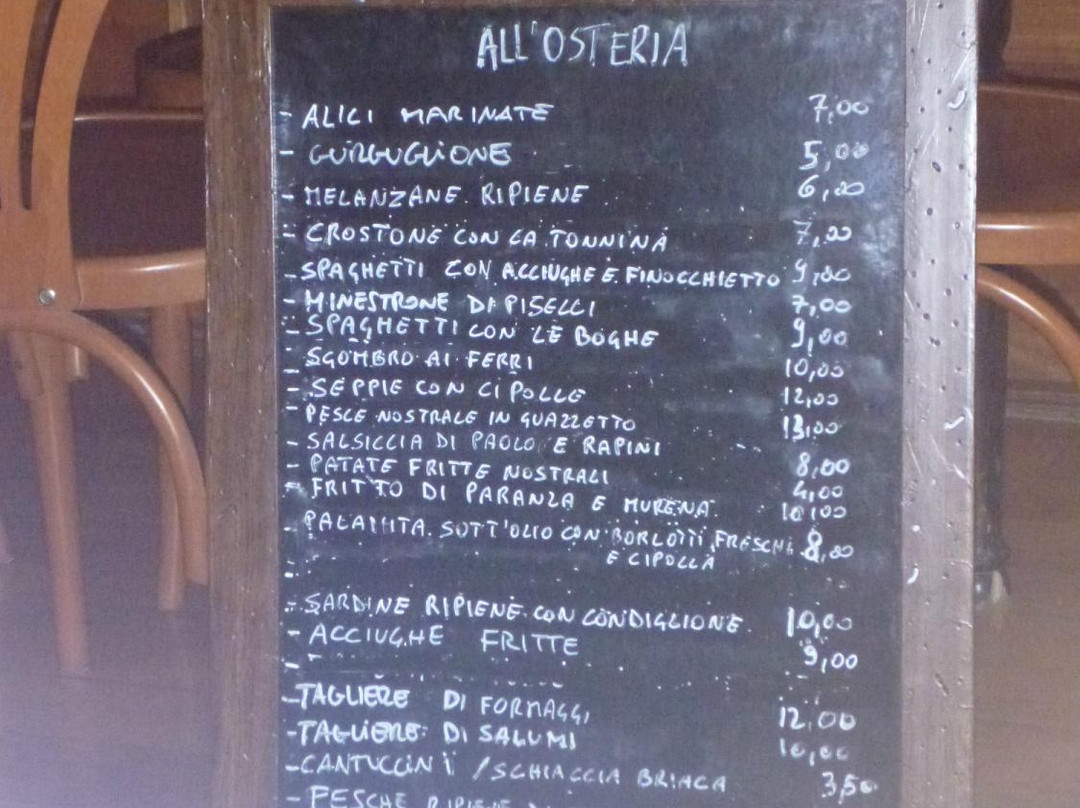 ALL'OSTERIA
- ALICI MARINATE 7,00
- GURGUGLIONE 5,00
- MELANZANE RIPIENE 6,00
- CROSTONE CON LA TONNINA 7,00
- SPAGHETTI CON ACCIUGHE E FINOCCHIETTO 9,00
- MINESTRONE DI PISELLI 7,00
- SPAGHETTI CON LE BOGHE 9,00
- SGOMBRO AI FERRI 10,00
- SEPPIE CON CIPOLLE 12,00
- PESCE NOSTRALE IN GUAZZETTO 13,00
- SALSICCIA DI PAOLO E RAPINI 8,00
- PATATE FRITTE NOSTRALI 4,00
- FRITTO DI PARANZA E MURENA 10,00
- PALAMITA SOTT'OLIO CON BORLOTTI FRESCHI 8,00
E CIPOLLA
- SARDINE RIPIENE CON CONDIGLIONE 10,00
- ACCIUGHE FRITTE 9,00
- TAGLIERE DI FORMAGGI 12,00
- TAGLIERE DI SALUMI 10,00
- CANTUCCINI / SCHIACCIA BRIACA 3,50
- PESCHE RIPIENE